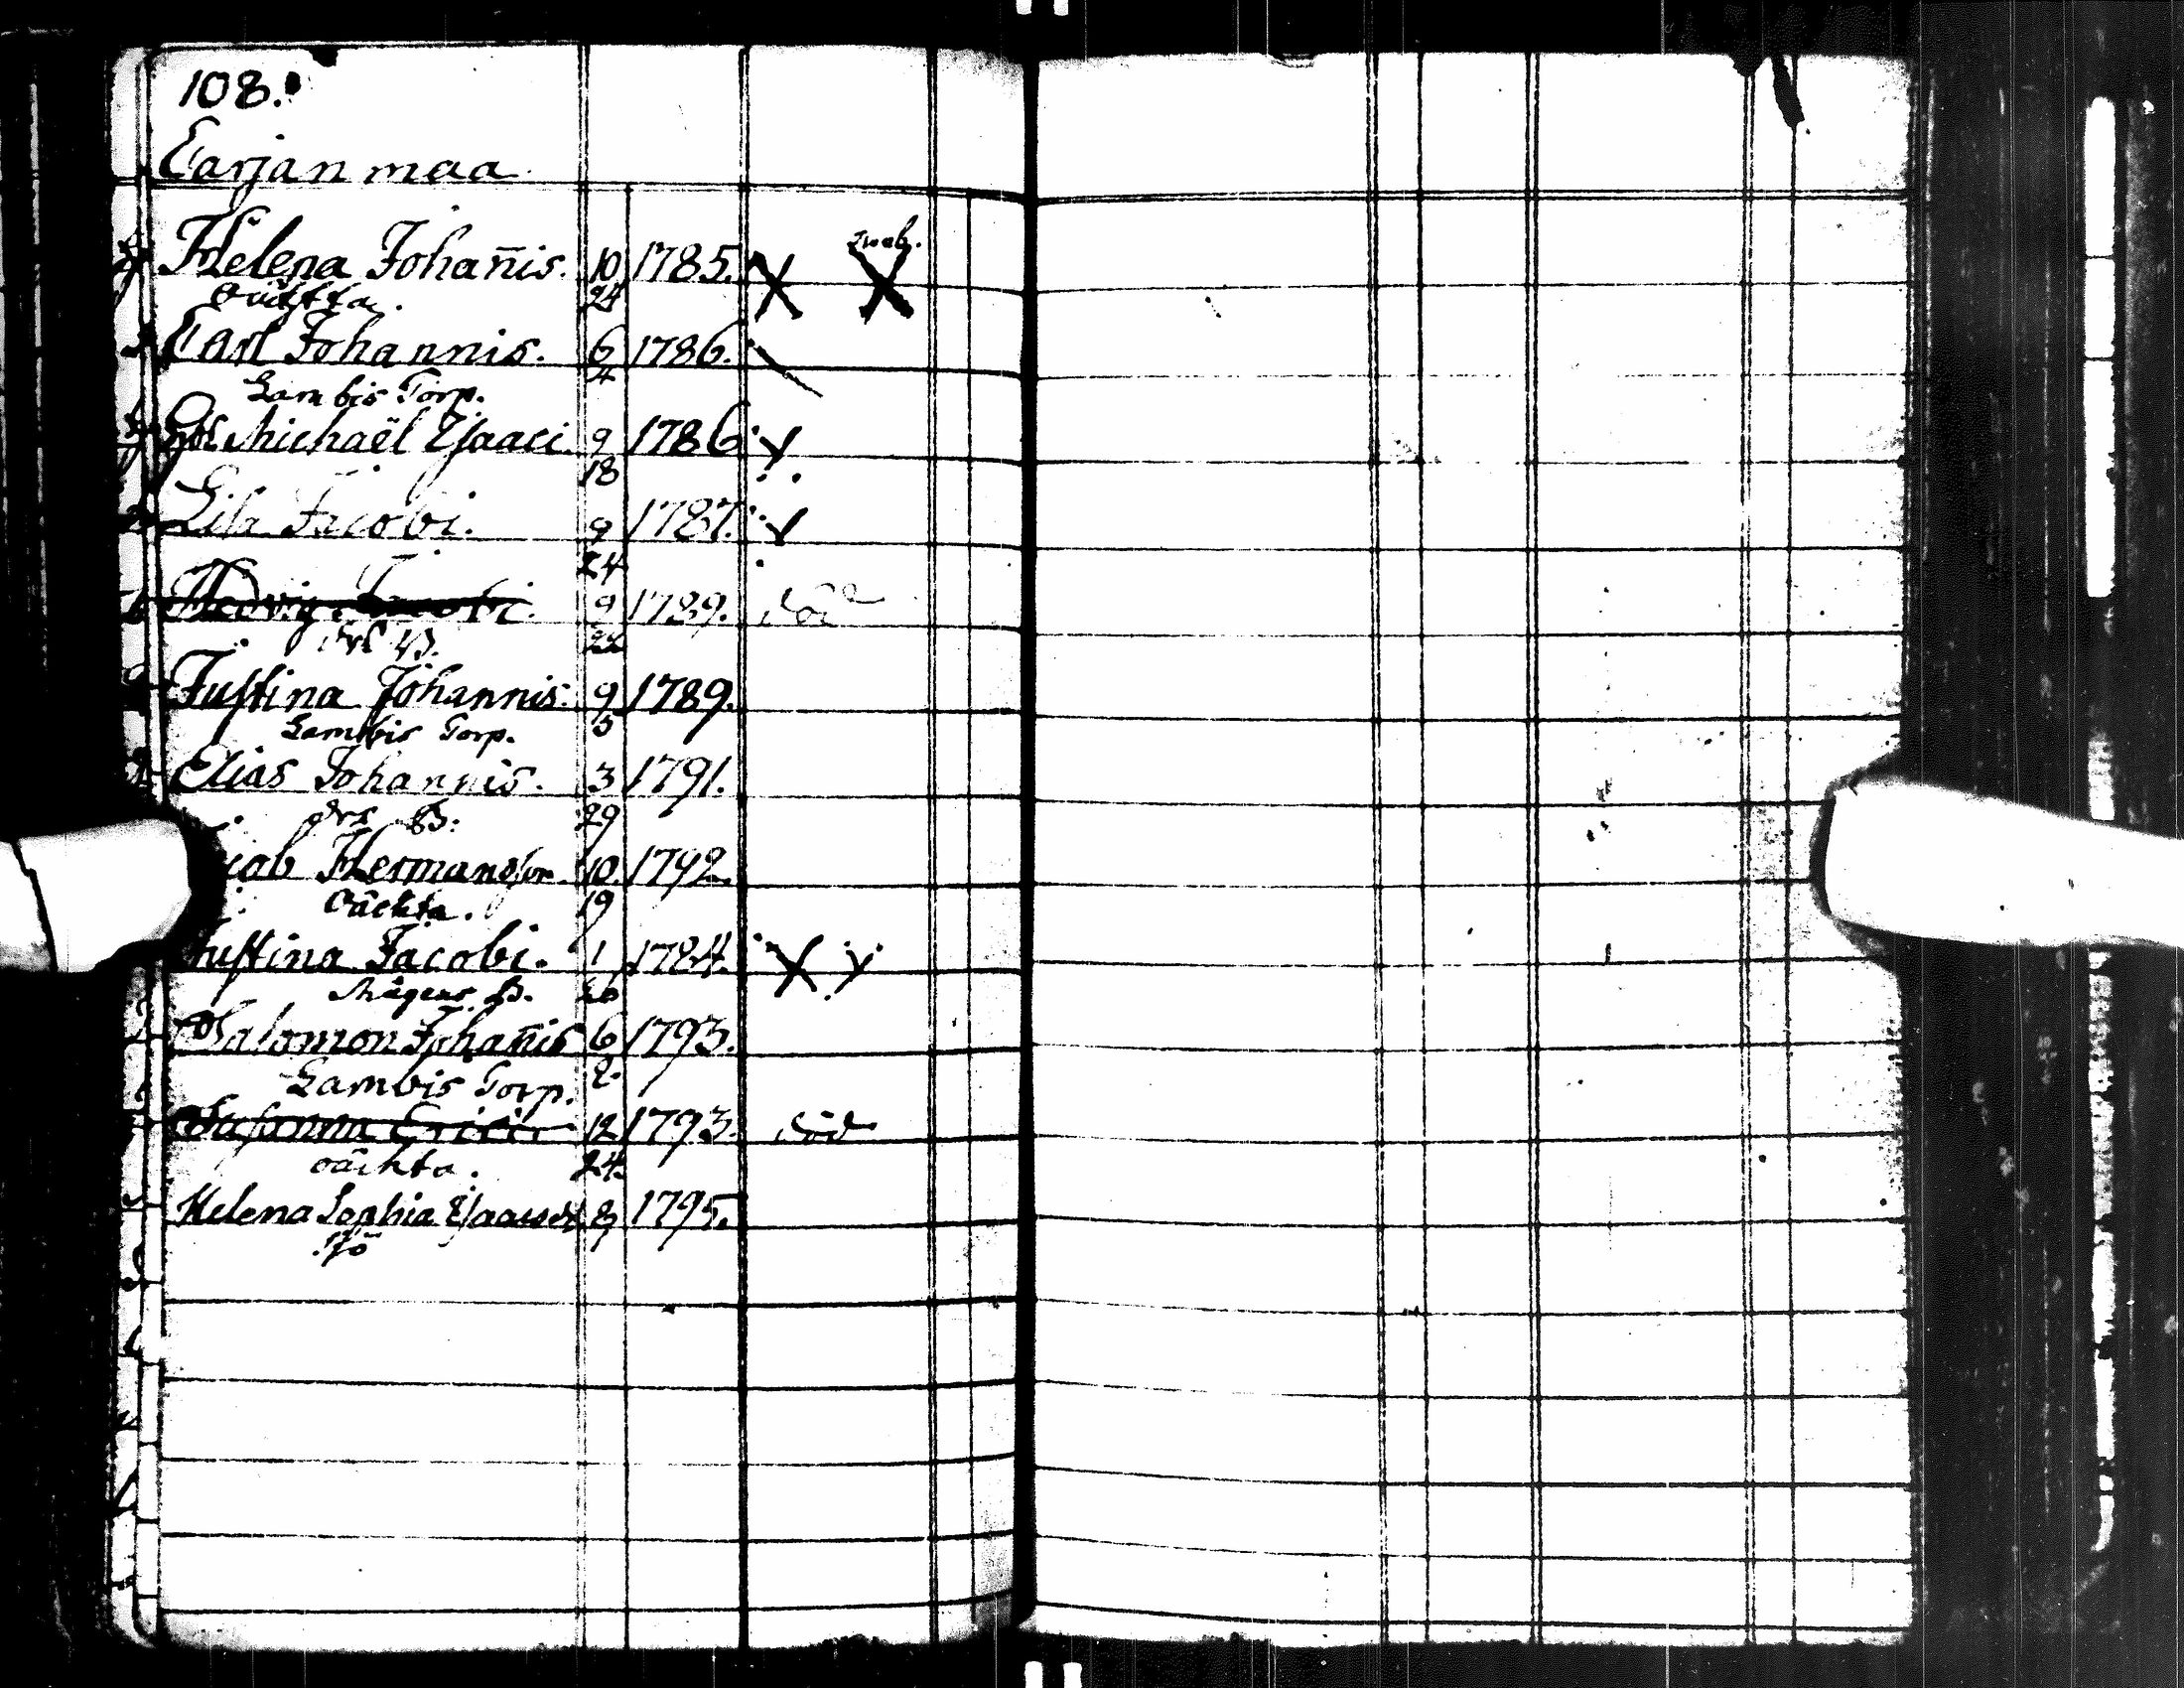 108.
Carjan maa
Helena Johañis. 10 1785. X X
24
Carl Johannis. 6 1786.
4
Lambis Torp.
Michaël Isaaci. 9 1786
18
Lisa Jacobi. 9 1787.
24
Hedvig Jacobi. 9 1789. död
Justina Johannis. 9 1789.
Lambis Torp. 5
Elias Johannis. 3 1791.
29
Hermansson. 10. 1792.
Oächta. 19
Justina Jacobi. 1 1784. X
Mågens D.
Salomon Johañis 6 1793.
Lambis Torp. 2.
Susanna Erici 12 1793. död
oächta. 24.
Helena Sophia Isaacsdr 8 1795.